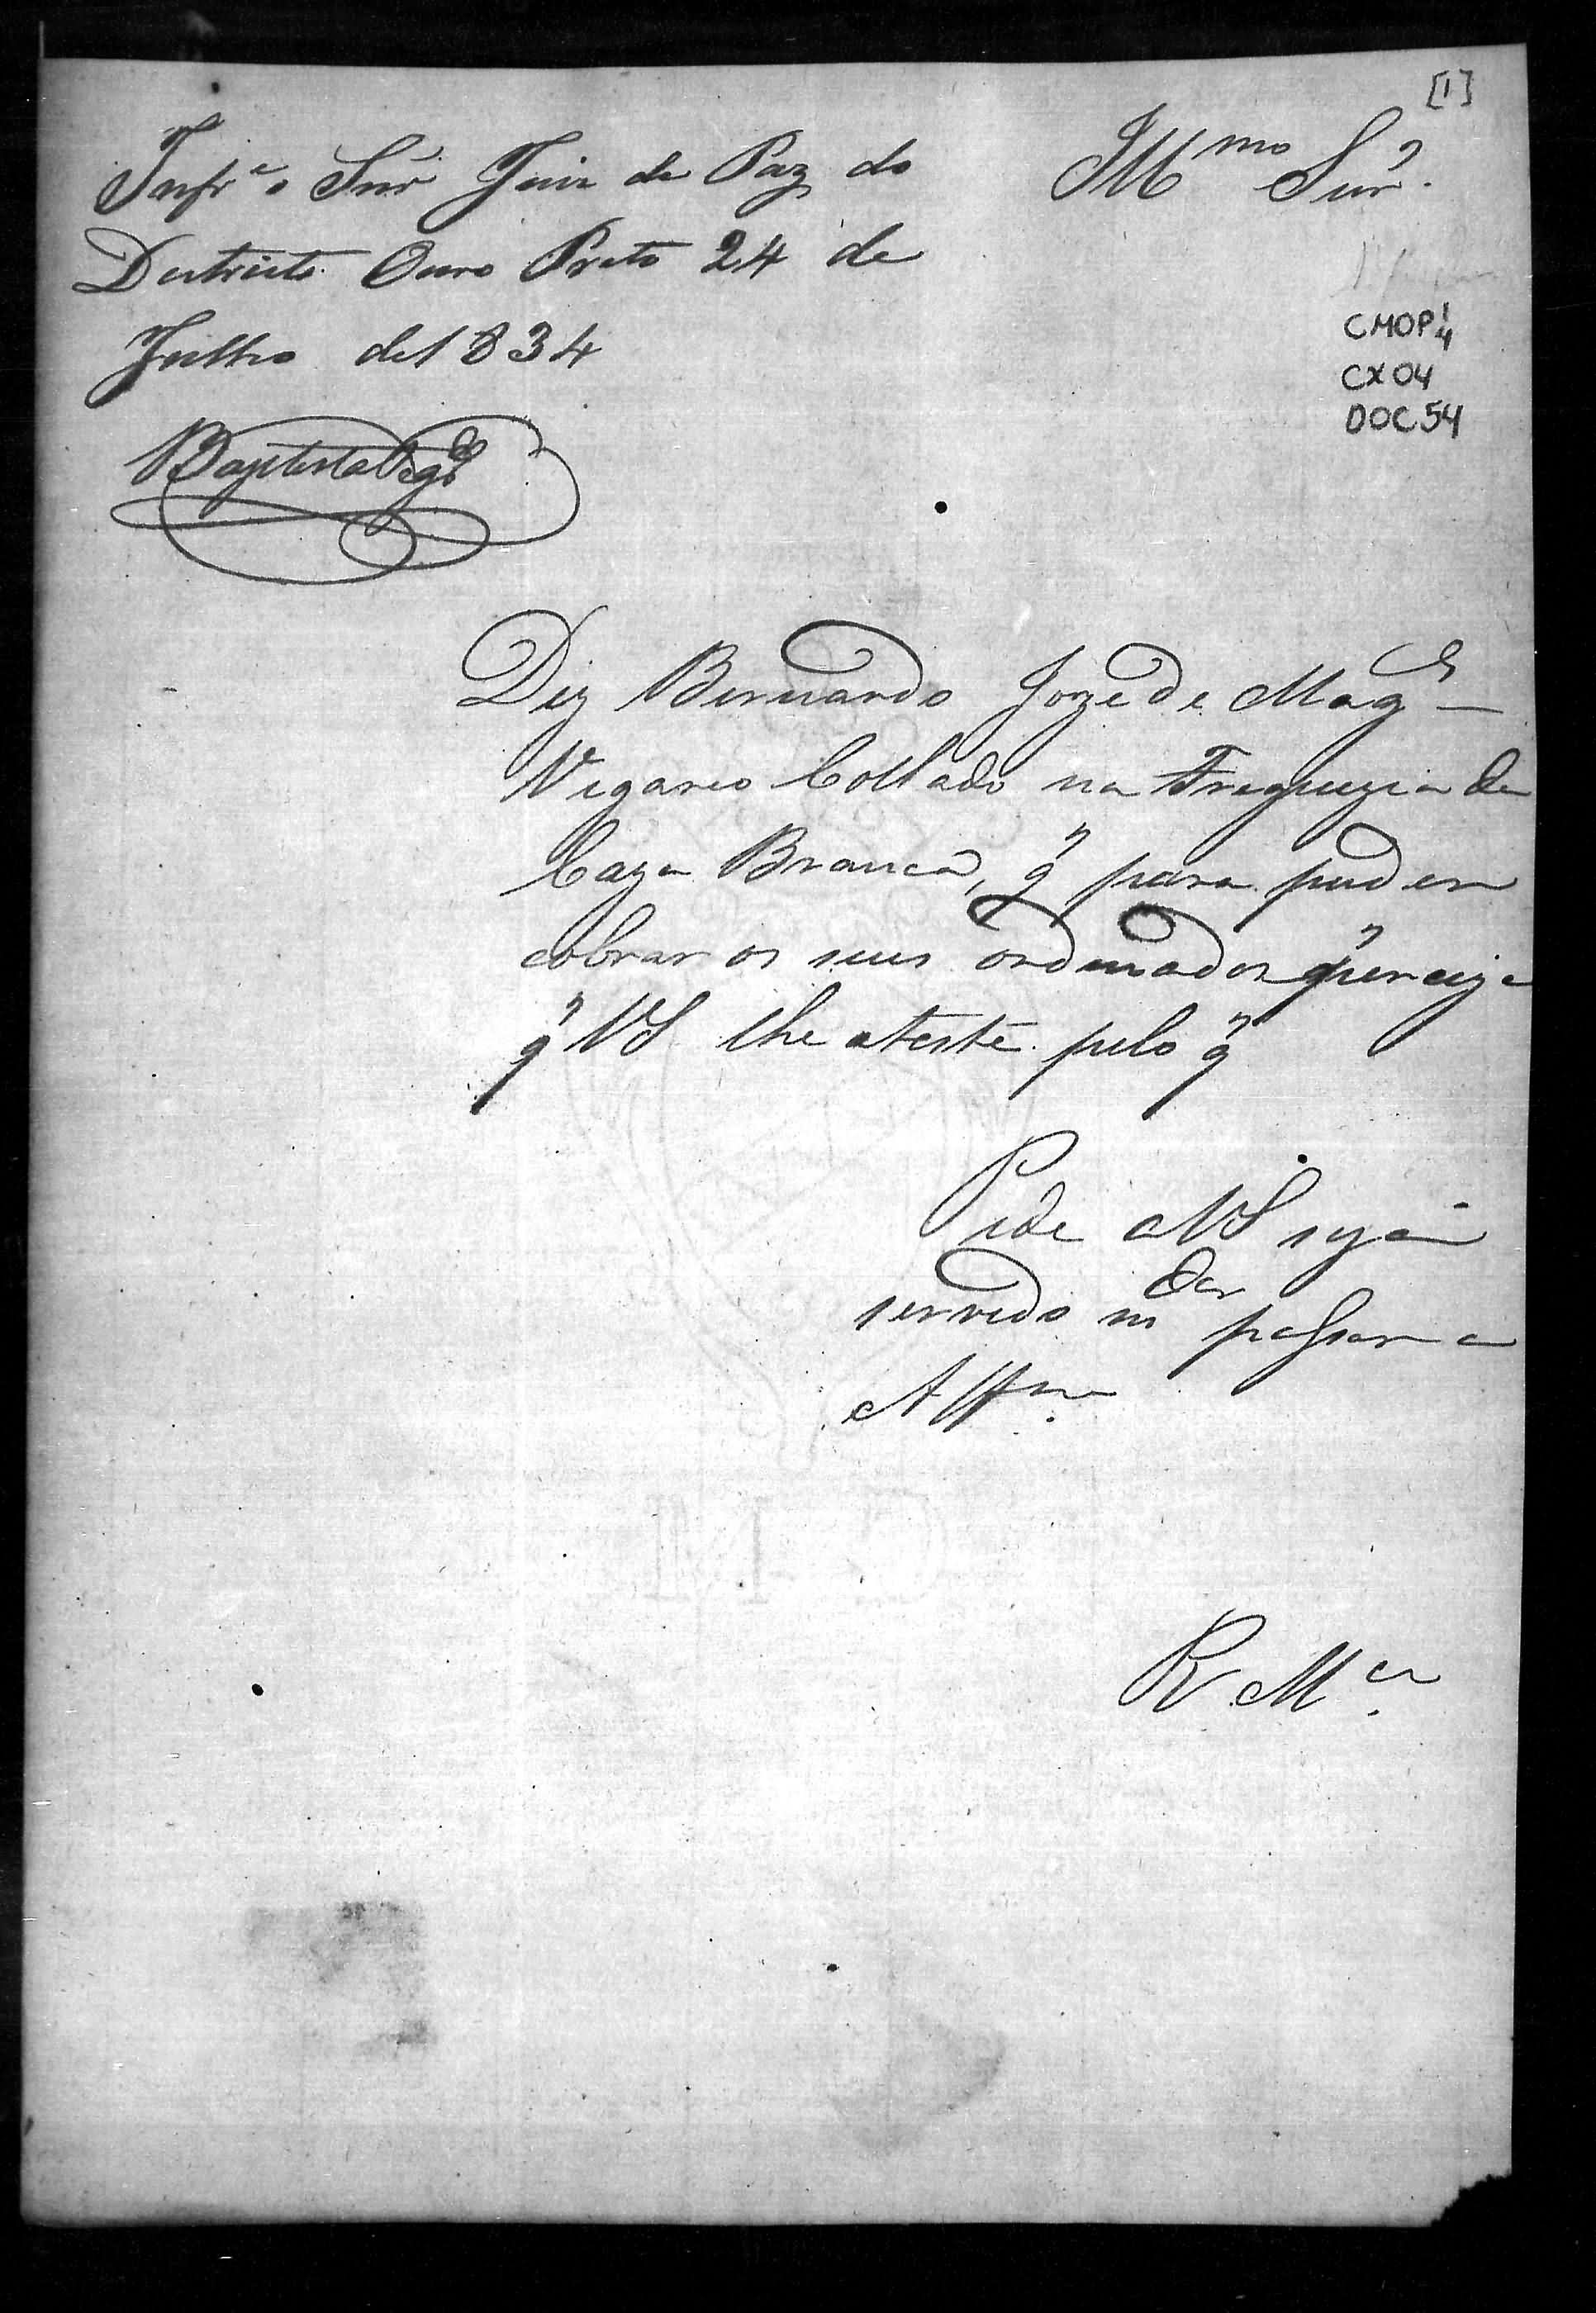 [1]
Infr.e o Snr Juiz de Paz do
Destricto Ouro Preto 24 de
Julho de 1834
Baptista
Illmo Snr.
CMOP 1/4
CX 04
DOC 54
Diz Bernardo Joze de Mag.es
Vigario Collado na Freguezia da
Caza Branca, q para puder
cobrar os seus ordenados perciza
q VS lhe ateste pelo q
Pede a VS seja
servido mdar passar a
Att.m
R M.ce